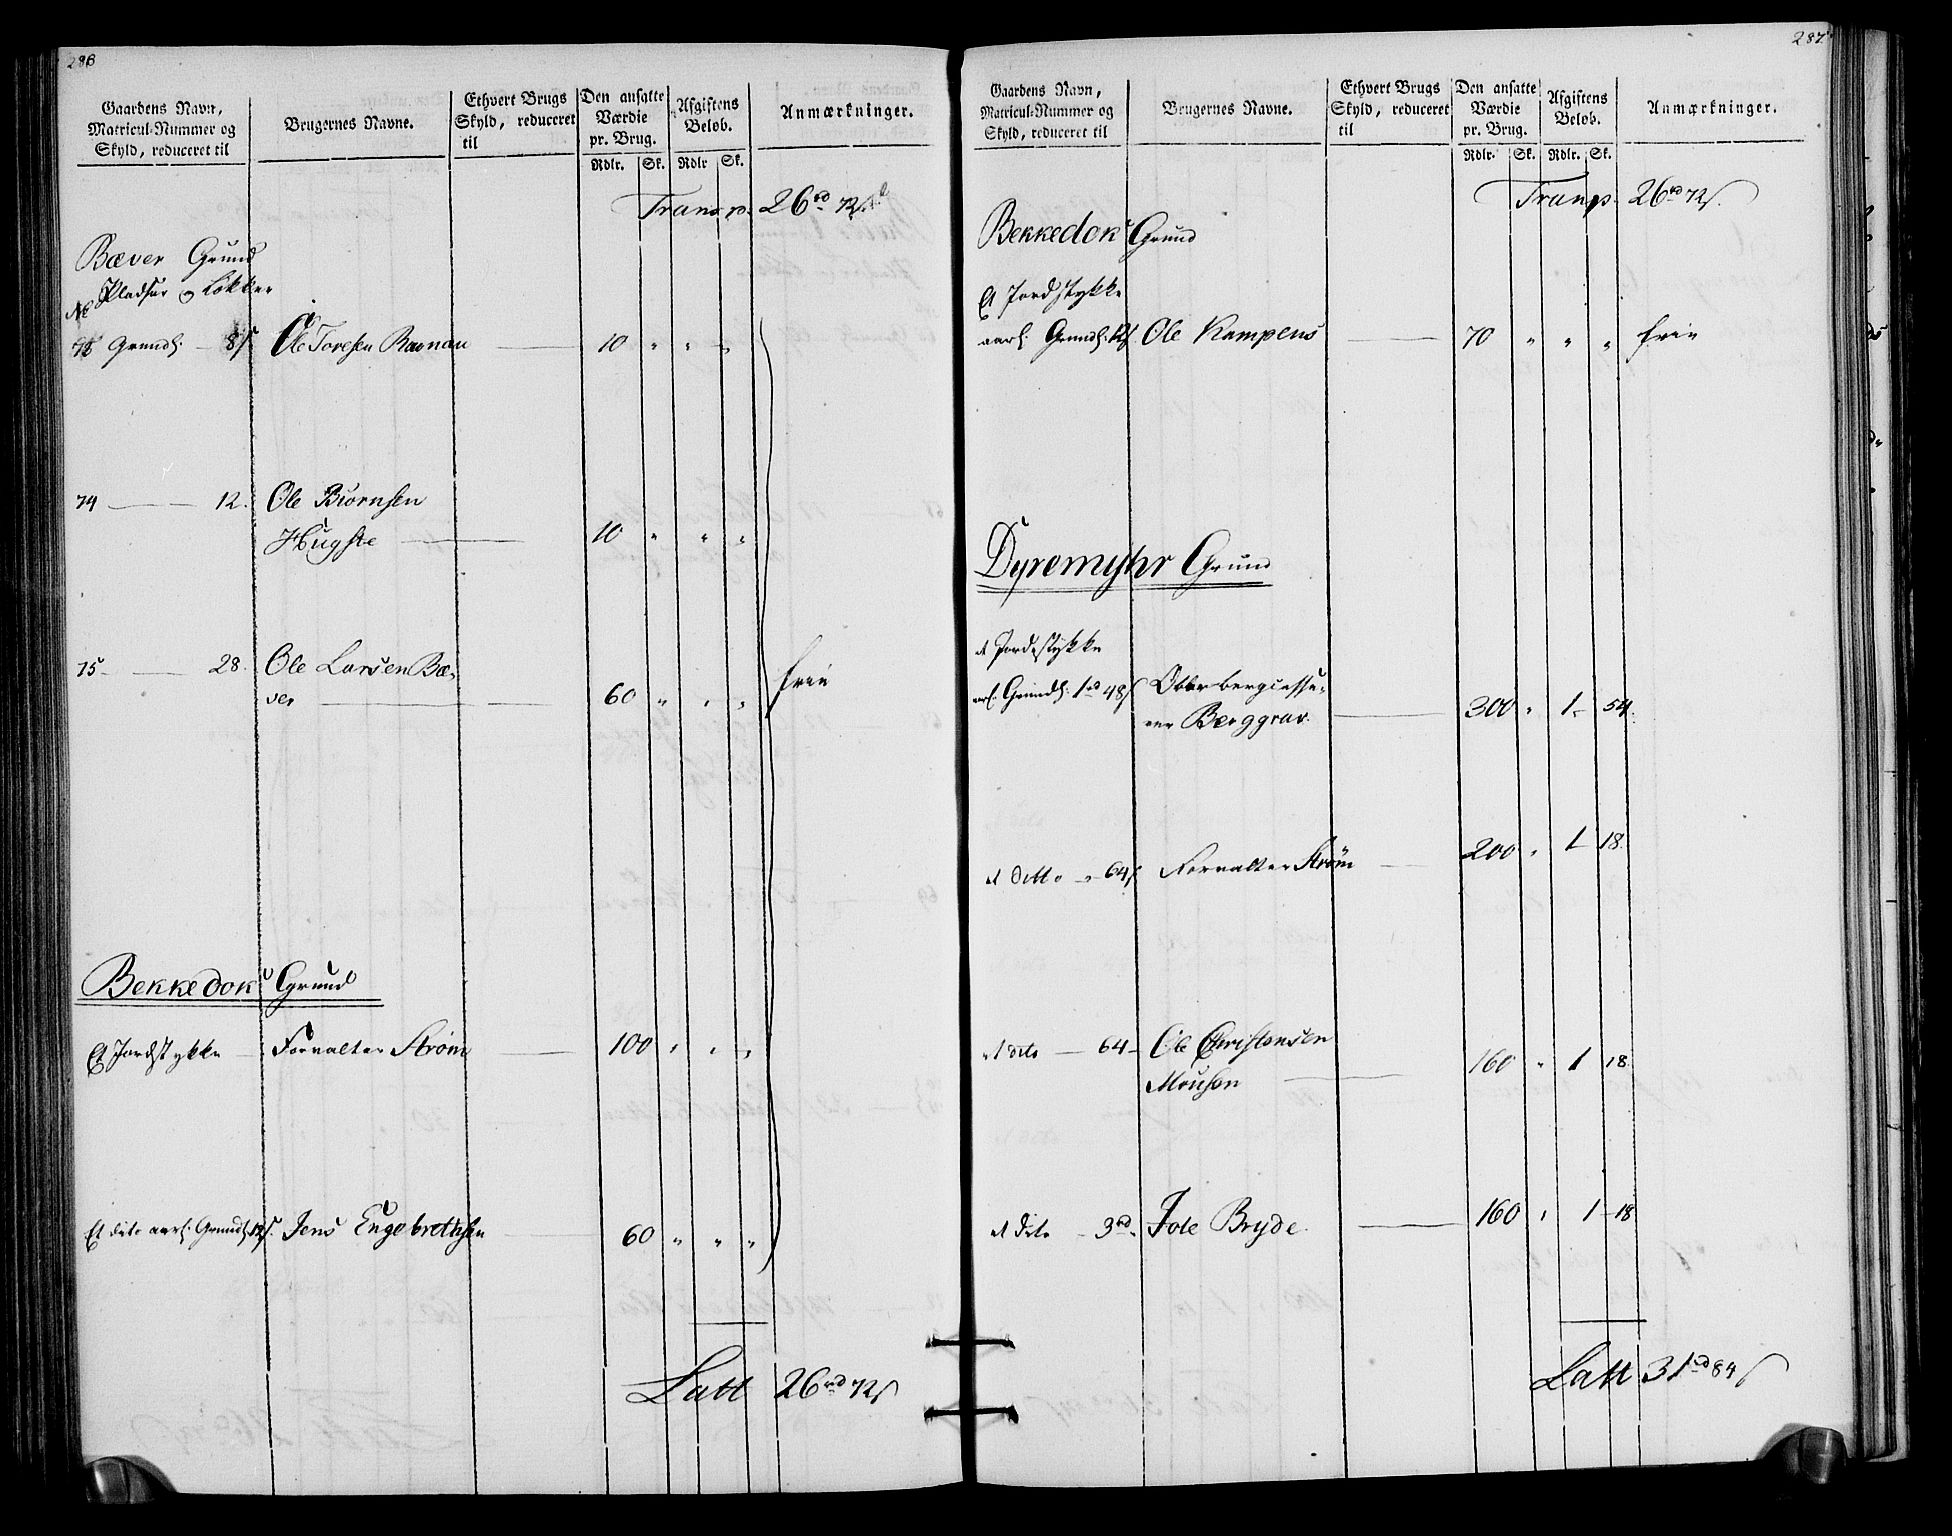 286
Gaardens Navn, Matricul-Nummer og Skyld, reduceret til
Brugernes Navne.
Ethvert Brugs Skyld, reduceret til
Den ansatte Værdie pr. Brug.
Afgiftens Beløb.
Anmærkninger.
Rdlr. Sk. Rdlr Sk.
Transp. 26rd 72s
Bæver Grund
Pladser og Løkker
No
Grundl. 8s Ole Toresen Ravnau 10 " " "
74 — 12. Ole Biørnsen
Hugste — 10 " " "
75 — 28. Ole Larsen Bæ-
ver — 60 " " " frie
Bekkedok Grund
Et Jordstykke — Forvalter Strøm — 100 " " "
Et dito aarl. Grundl. 12s. Jens Engebrethsen 60 " " "
Latt 26rd 72s
287
Gaardens Navn, Matricul-Nummer og Skyld, reduceret til
Brugernes Navne.
Ethvert Brugs Skyld, reduceret til
Den ansatte Værdie pr. Brug.
Afgiftens Beløb.
Anmærkninger.
Rdlr. Sk. Rdlr. Sk.
Transp. 26rd 72s.
Bekkedok Grund
Et Jordstykke
aarl. Grundl. 12s Ole Kampens — 70 " " " frie
Dyremyhr Grund
et Jordestykke
aarl. Grundl. 1rd 48s Oberbergiasse-
ner Berggrav. — 300 " 1 - 54.
et ditto - " 64s Forvalter Strøm — 200 " 1 - 18.
et dito — 64 - Ole Christensen
Mousen — 160 " 1 18.
et dito - 3rd " Tole Bryde. — 160 " 1 - 18
Latt 31rd 84s